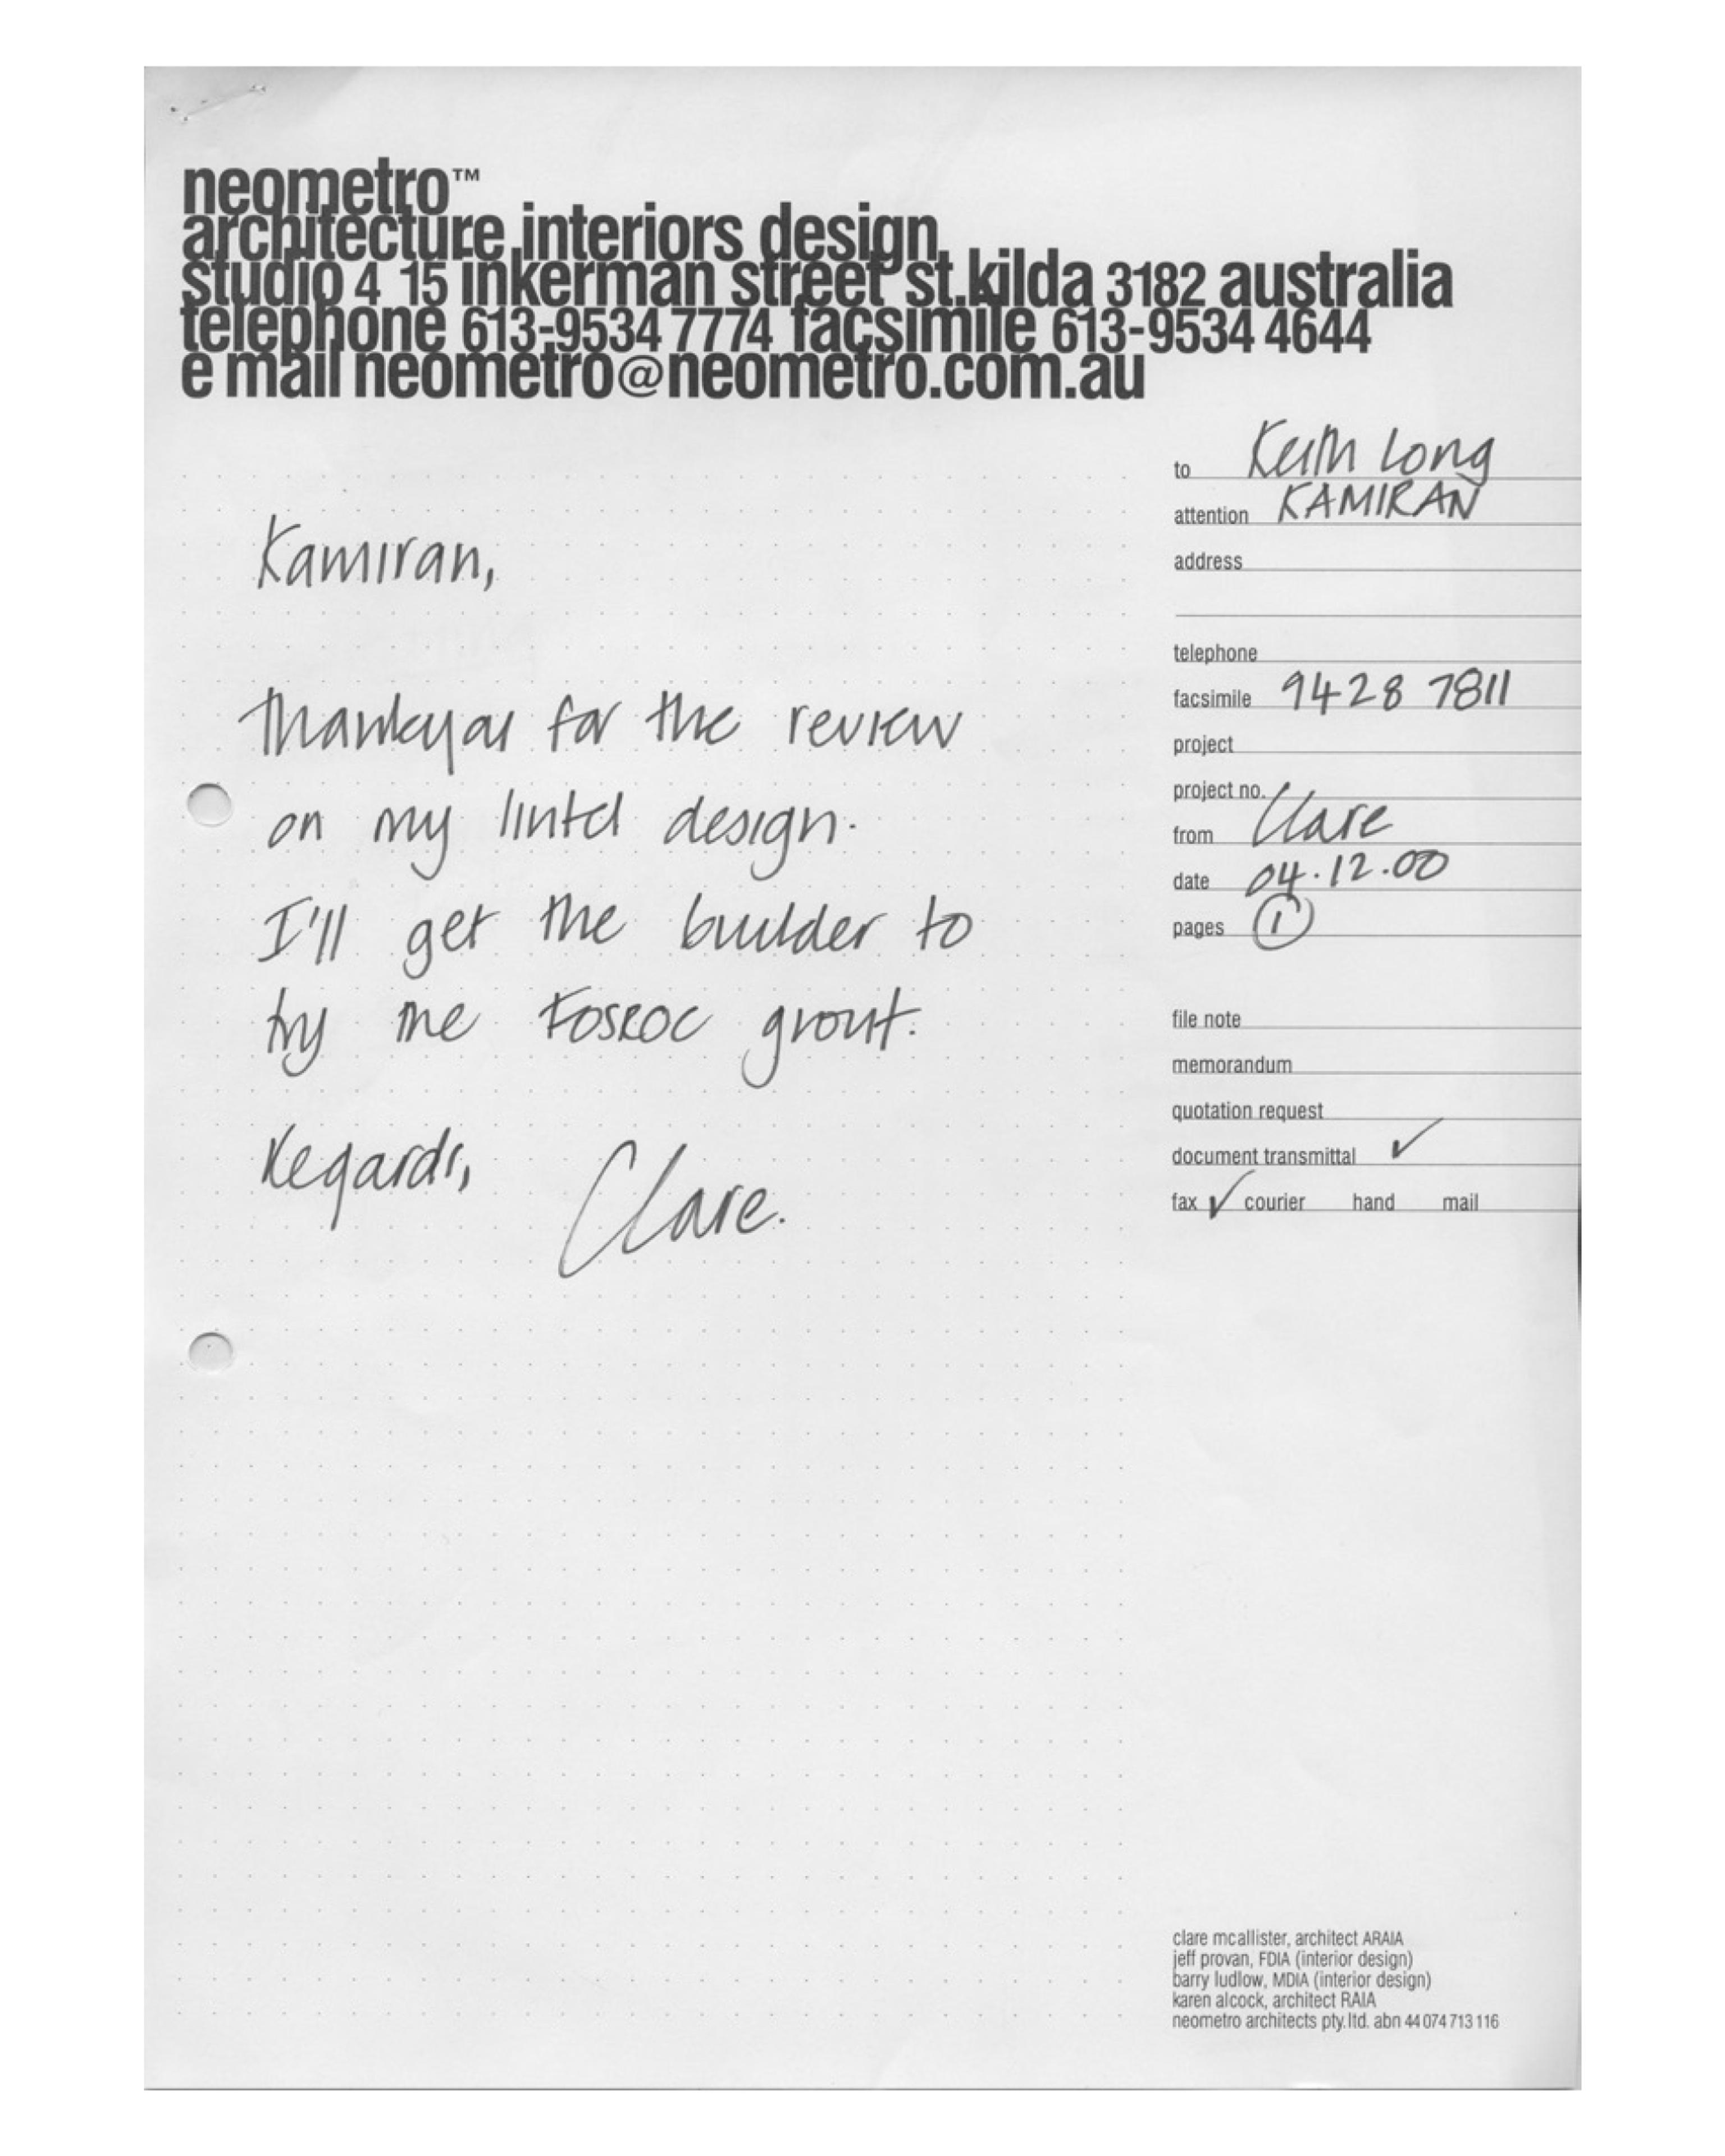 neometro™
architecture interiors design
studio 4 15 inkerman street st.kilda 3182 australia
telephone 613-9534 7774 facsimile 613-9534 4644
e mail neometro@neometro.com.au
to Keith Long
attention KAMIRAN
address
telephone
facsimile 9428 7811
project
project no.
from Clare
date 04.12.00
pages 1
file note
memorandum
quotation request
document transmittal ✓
fax ✓ courier hand mail
Kamiran,
Thankyou for the review
on my lintel design.
I'll get the builder to
try the FOSROC grout.
Regards, Clare.
clare mcallister, architect ARAIA
jeff provan, FDIA (interior design)
barry ludlow, MDIA (interior design)
karen alcock, architect RAIA
neometro architects pty.ltd. abn 44 074 713 116